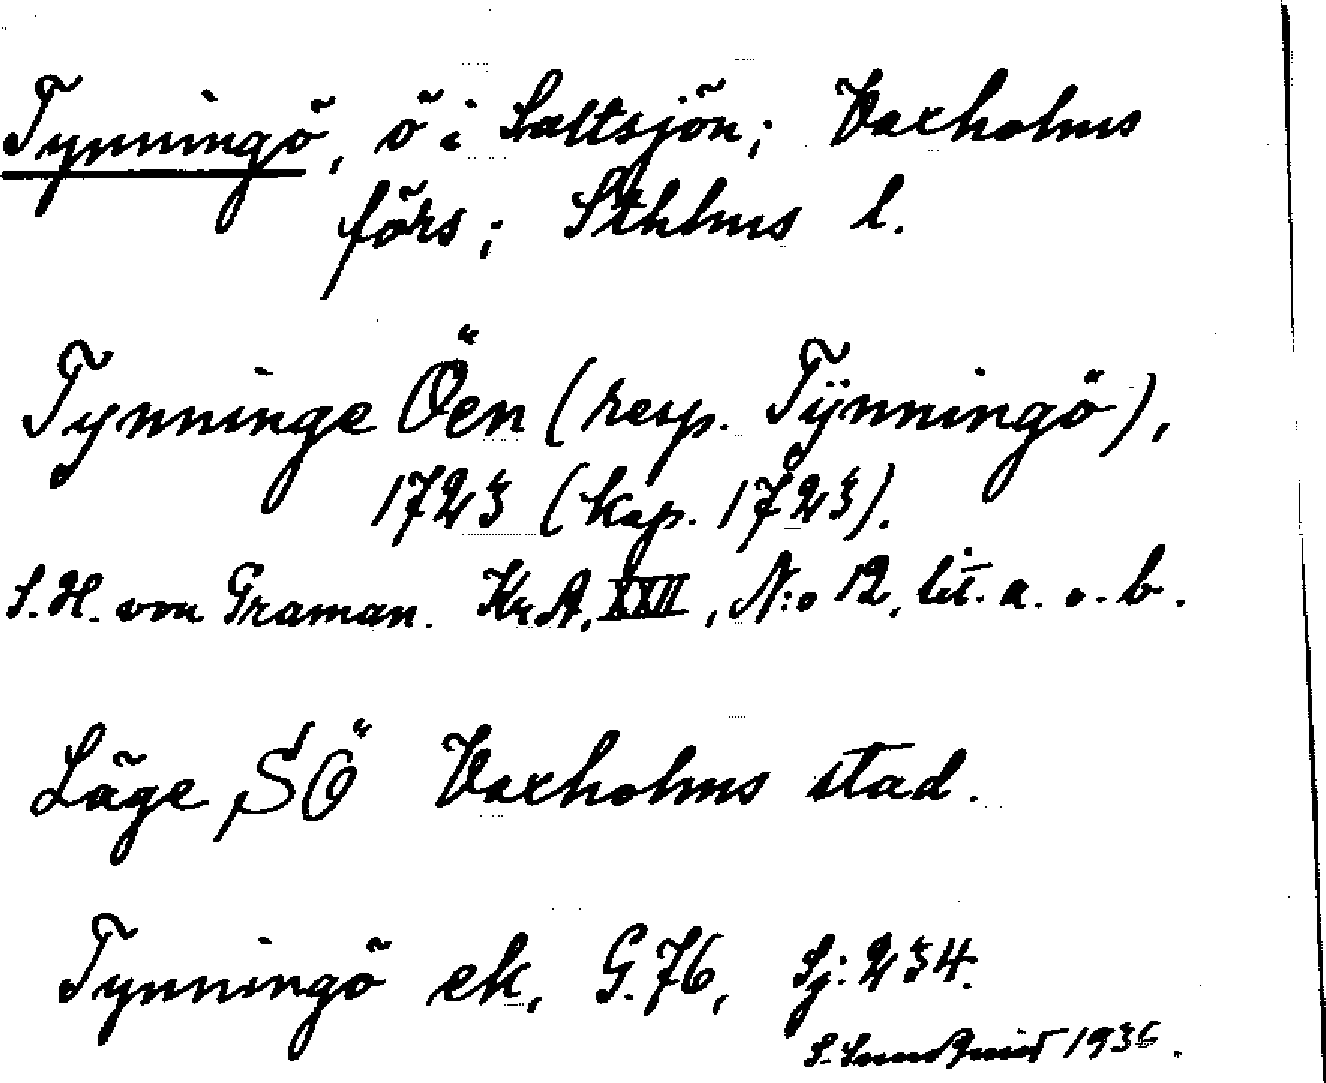 Tynningö, ö i Saltsjön; Vaxholms
förs; Sthlms l.
Tynninge Öen (resp. Tÿnningö),
1723 (kop. 1723).
S. H. von Graman. Kr.A. XXII, N:o 12, lit. a. o. b.
Läge SÖ Vaxholms stad.
Tynningö ek. G. 76, Sj: 234.
S. Lundquist 1936.